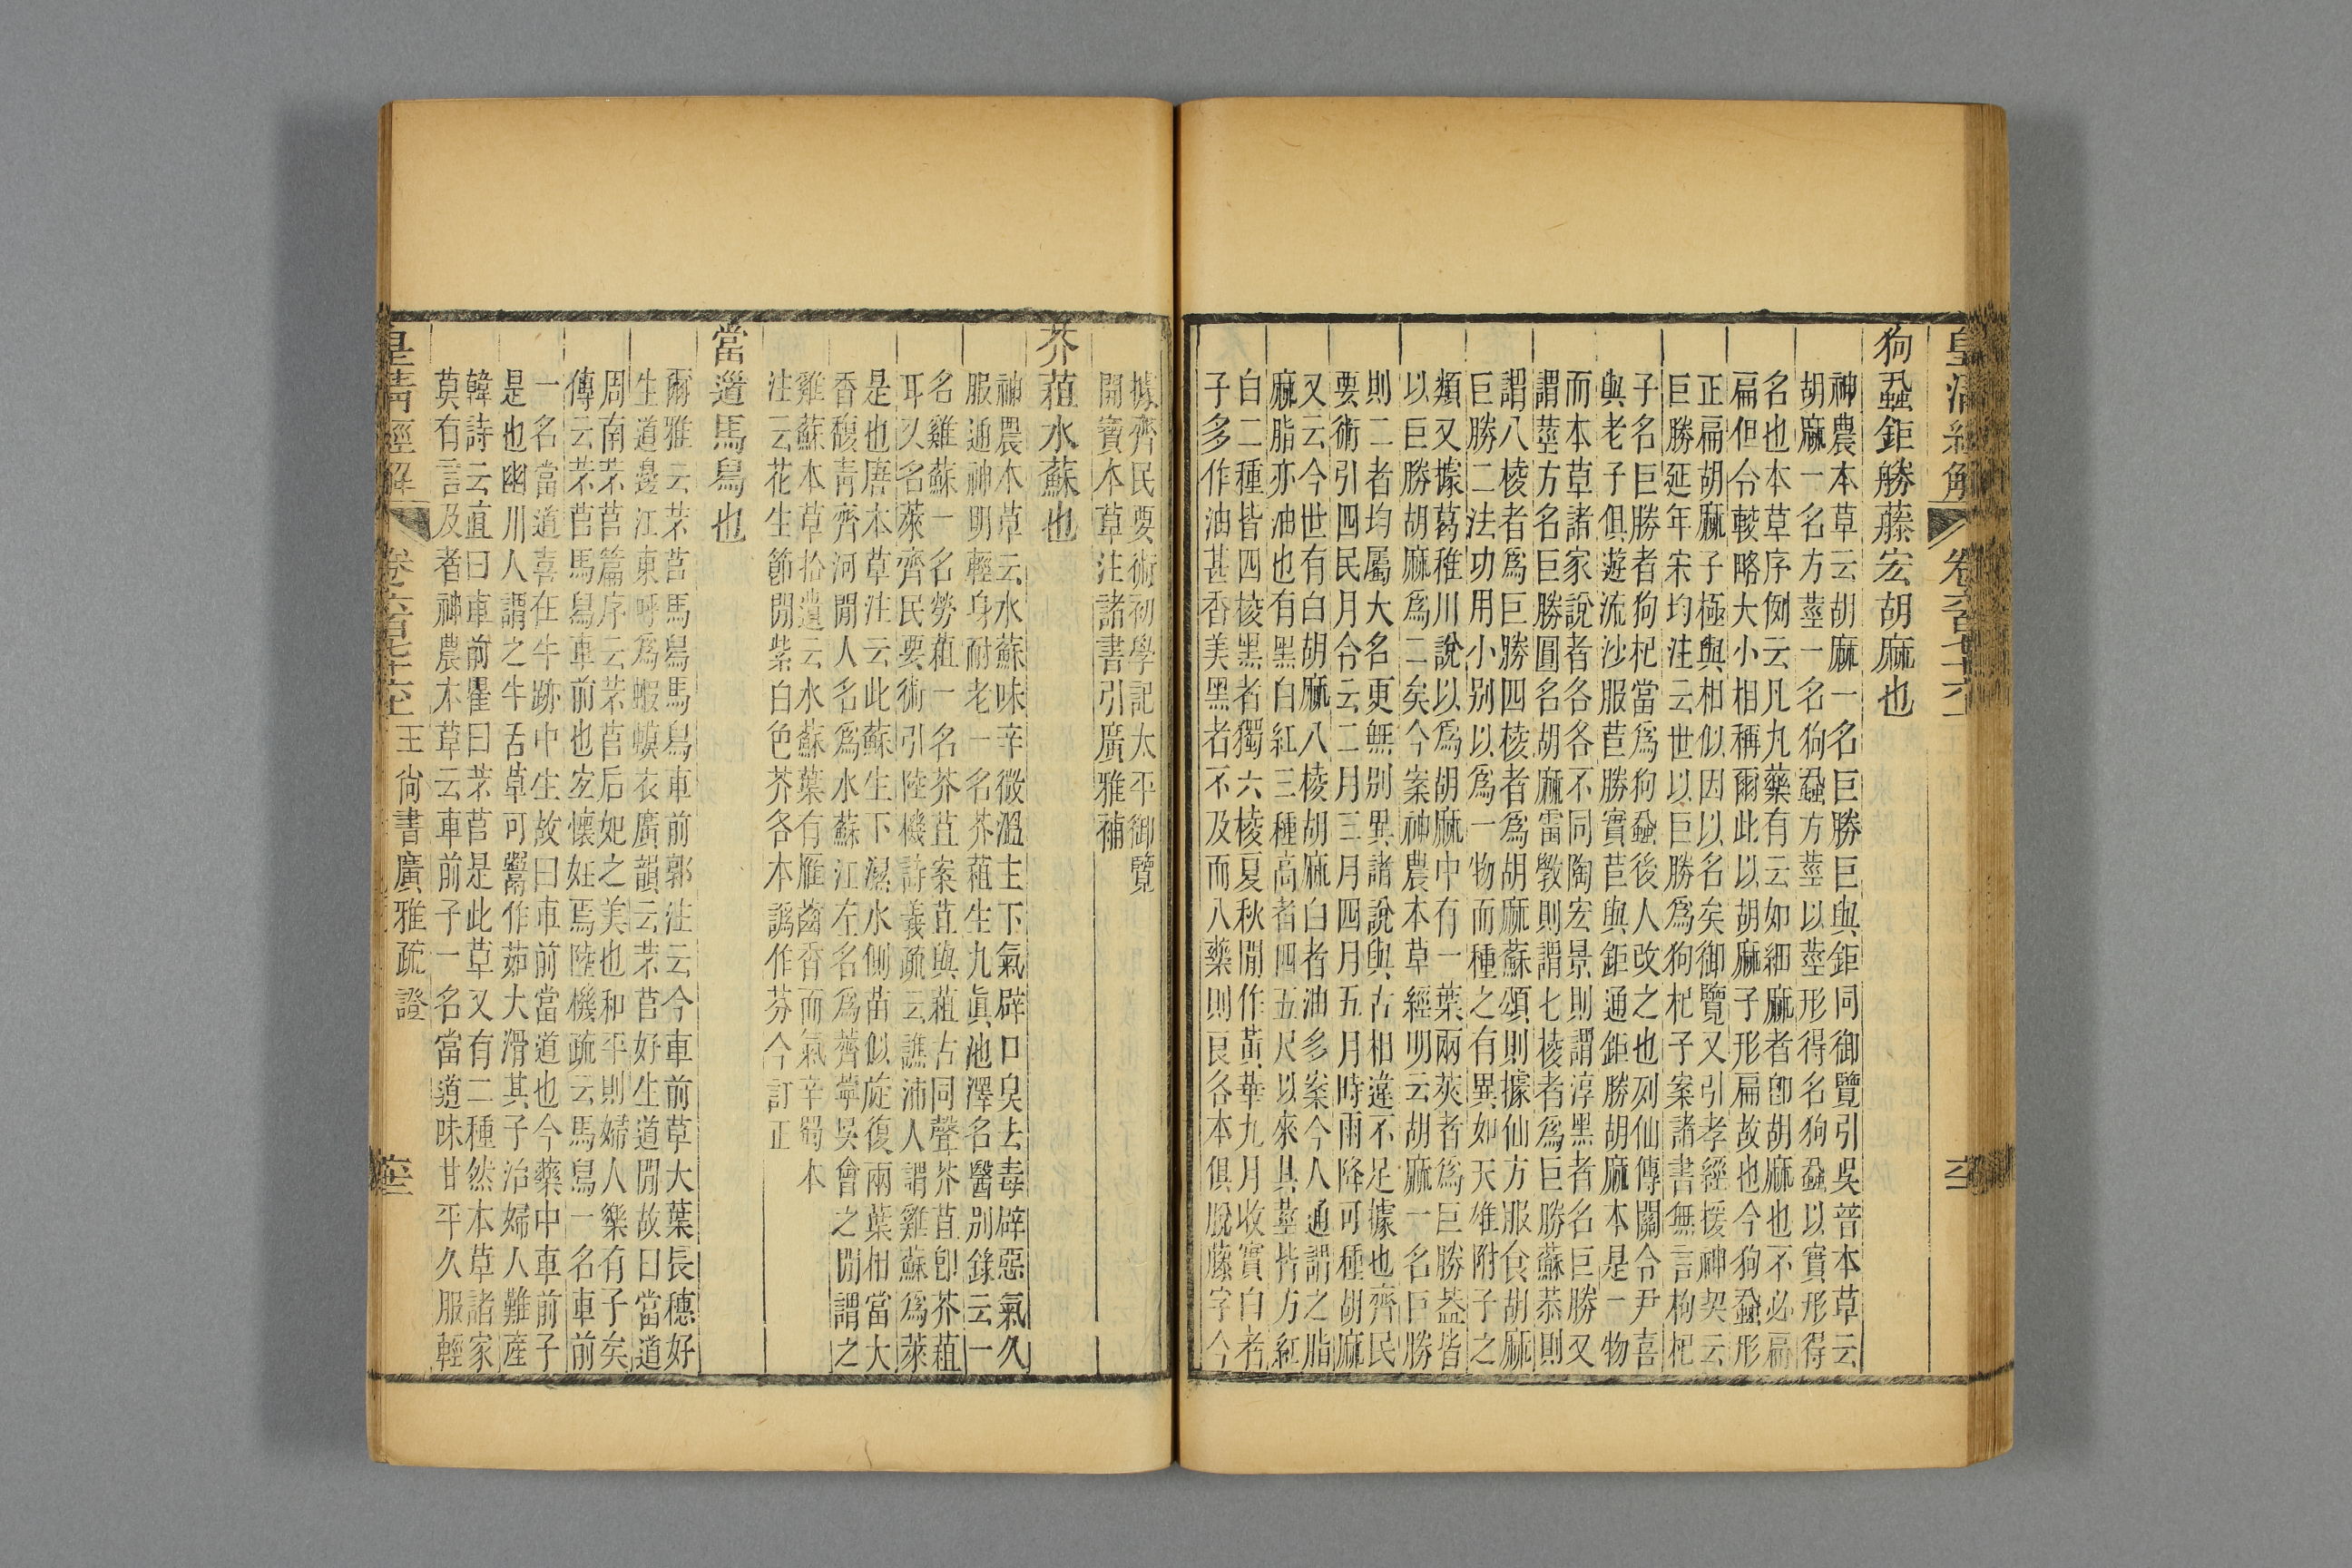 狗蝨鉅勝藤宏胡麻也
神農本草云胡麻一名巨勝巨與鉅同御覽引吳普本草云
胡麻一名方莖一名狗蝨方莖以莖形得名狗蝨以實形得
名也本草序例云凡九藥有云如細麻者卽胡麻也不必扁
扁但令較略大小相稱爾此以胡麻子形扁故也今狗蝨形
正扁胡麻子極與相似因以名矣御覽又引孝經援神契云
巨勝延年宋均注云世以巨勝爲狗杞子案諸書無言枸杞
子名巨勝者狗杞當爲狗蝨後人改之也列仙傳關令尹喜
與老子俱遊流沙服苣勝實苣與鉅通鉅勝胡麻本是一物
而本草諸家說者各各不同陶宏景則謂淳黑者名巨勝又
謂莖方名巨勝圓名胡麻雷斅則謂七棱者爲巨勝蘇恭則
謂八棱者爲巨勝四棱者爲胡麻蘇頌則據仙方服食胡麻
巨勝二法功用小别以爲一物而種之有異如天雄附子之
類又據葛稚川說以爲胡麻中有一葉兩莢者爲巨勝葢皆
以巨勝胡麻爲二矣今案神農本草經明云胡麻一名巨勝
則二者均屬大名更無别異諸說與古相違不足據也齊民
要術引四民月令云二月三月四月五月時雨降可種胡麻
又云今世有白胡麻八棱胡麻白者油多案今人通謂之脂
麻脂亦油也有黑白紅三種高者四五尺以來其莖皆方紅
白二種皆四棱黑者獨六棱夏秋閒作黃華九月收實白者
子多作油甚香美黑者不及而八藥則良各本俱脫藤字今
據齊民要術初學記太平御覽
開寶本草注諸書引廣雅補
芥蒩水蘇也
神農本草云水蘇味辛微溫主下氣辟口臭去毒辟惡氣久
服通神明輕身耐老一名芥蒩生九眞池澤名醫别錄云一
名雞蘇一名勞蒩一名芥苴案苴與蒩古同聲芥苴卽芥蒩
耳又名萊齊民要術引陸機詩義疏云譙沛人謂雞蘇爲萊
是也唐本草注云此蘇生下濕水側苗似旋復兩葉相當大
香馥靑齊河閒人名爲水蘇江左名爲薺薴吳會之閒謂之
雞蘇本草拾遺云水蘇葉有雁齒香而氣辛蜀本
注云花生節閒紫白色芥各本譌作芬今訂正
當道馬舄也
爾雅云芣苢馬舄馬舄車前郭注云今車前草大葉長穗好
生道邊江東呼爲蝦蟆衣廣韻云芣苢好生道閒故曰當道
周南芣苢篇序云芣苢后妃之美也和平則婦人樂有子矣
傳云芣苢馬舄車前也宐懷妊焉陸機疏云馬舄一名車前
一名當道喜在牛跡中生故曰車前當道也今藥中車前子
是也幽川人謂之牛舌草可鬻作茹大滑其子治婦人難産
韓詩云直曰車前瞿曰芣苢是此草又有二種然本草諸家
莫有言及者神農本草云車前子一名當道味甘平久服輕
皇淸經解 王尙書廣雅疏證